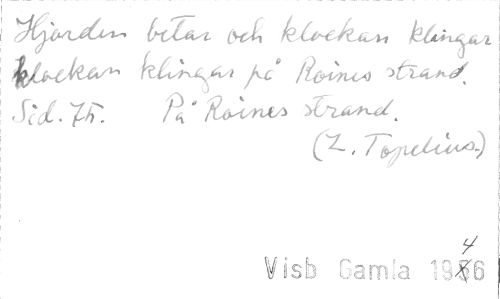 Hjorden betar och klockan klingar
klockan klingar på Roines strand.
Sid. 75. På Roines strand.
(Z. Topelius.)
Visb Gamla 1946